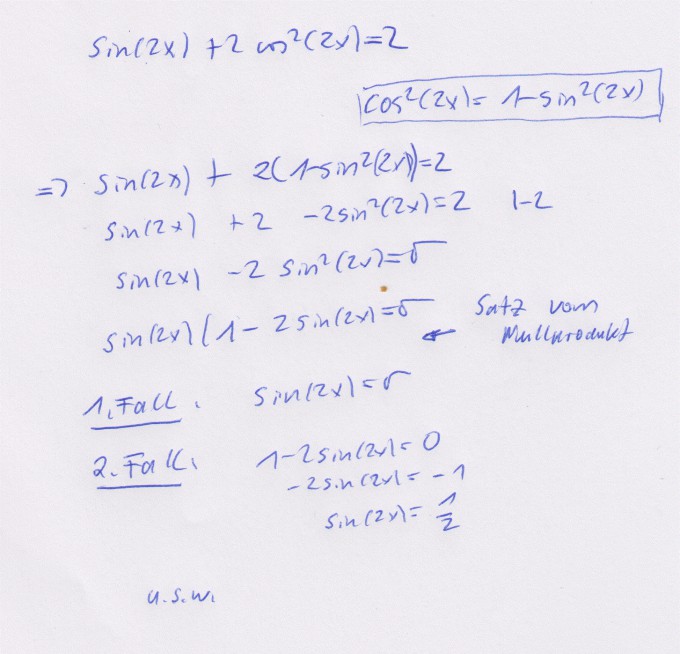 sin(2x) + 2 cos²(2x) = 2
cos²(2x) = 1 - sin²(2x)
=> sin(2x) + 2(1-sin²(2x)) = 2
sin(2x) + 2 - 2sin²(2x) = 2 |-2
sin(2x) - 2 sin²(2x) = 0
sin(2x) (1 - 2 sin(2x) = 0 ← Satz vom
Nullprodukt
1. Fall. sin(2x) = 0
2. Fall. 1 - 2 sin(2x) = 0
-2 sin(2x) = -1
sin(2x) = 1/2
u.s.w.